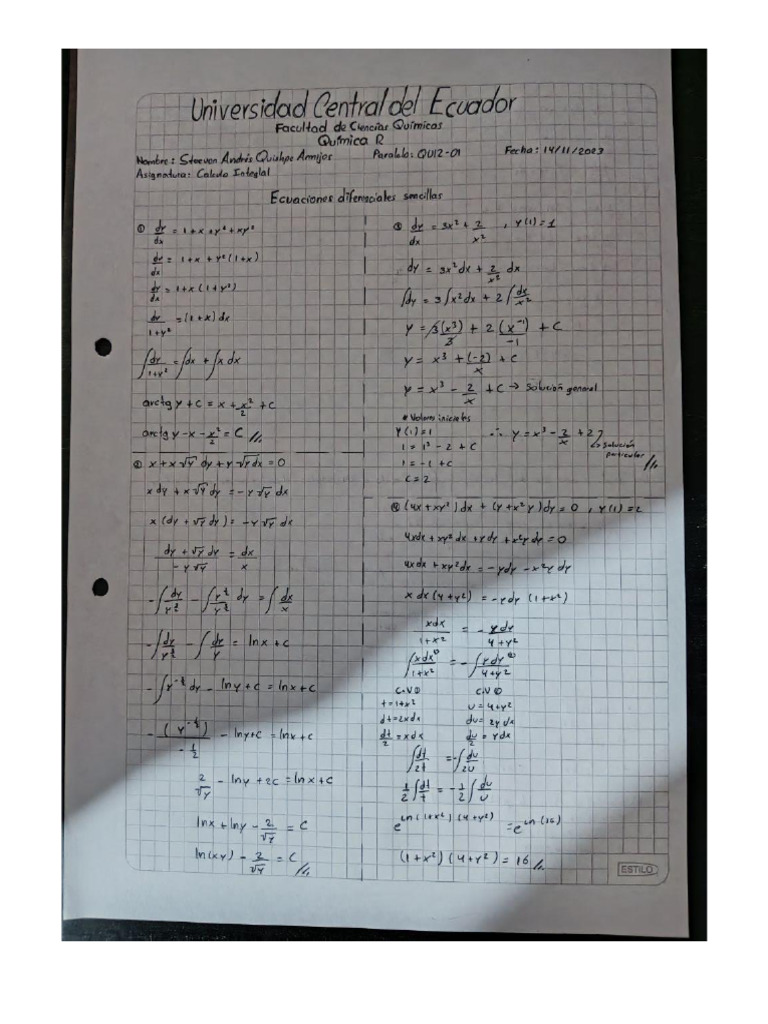 Universidad Central del Ecuador
Facultad de Ciencias Químicas
Química R
Nombre: Steeven Andrés Quishpe Armijos Paralelo: QUI2-01 Fecha: 14/11/2023
Asignatura: Calculo Integral
Ecuaciones diferenciales sencillas
① dy/dx = 1+x+y²+xy²
dy/dx = 1+x+y²(1+x)
dy/dx = 1+x(1+y²)
dy/1+y² = (1+x)dx
∫dy/1+y² = ∫dx + ∫x dx
arctg y + c = x + x²/2 + c
arctg y - x - x²/2 = C //.
② x + x√y dy + y√y dx = 0
x dy + x√y dy = -y√y dx
x(dy + √y dy) = -y√y dx
dy + √y dy / -y√y = dx/x
-∫dy/y^3/2 - ∫y^1/2/y^3/2 dy = ∫dx/x
-∫dy/y^3/2 - ∫dy/y = lnx + c
-∫y^-3/2 dy - lny + c = lnx + c
-(y^-1/2)/-1/2 - lny + c = lnx + c
2/√y - lny + 2c = lnx + c
lnx + lny - 2/√y = C
ln(xy) - 2/√y = C //.
③ dy/dx = 3x² + 2/x² , y(1) = 1
dy = 3x²dx + 2/x² dx
∫dy = 3∫x²dx + 2∫dx/x²
y = 3(x³)/3 + 2(x⁻¹)/-1 + C
y = x³ + (-2)/x + C
y = x³ - 2/x + C → Solución general
# Valores iniciales
y(1) = 1 ∴ y = x³ - 2/x + 2
1 = 1³ - 2 + C → Solución
1 = -1 + c particular //.
c = 2
④ (4x + xy²)dx + (y + x²y)dy = 0 , y(1) = 2
4xdx + xy²dx + ydy + x²y dy = 0
4xdx + xy²dx = -ydy - x²y dy
x dx(4+y²) = -ydy(1+x²)
xdx/1+x² = -ydy/4+y²
∫xdx/1+x² ① = -∫ydy/4+y² ②
C.V① C.V②
t = 1+x² u = 4+y²
dt = 2xdx du = 2y dx
dt/2 = xdx du/2 = ydx
∫dt/2t = -∫du/2u
1/2∫dt/t = -1/2∫du/u
e^ln(1+x²)(4+y²) = e^ln(16)
(1+x²)(4+y²) = 16 //.
ESTILO